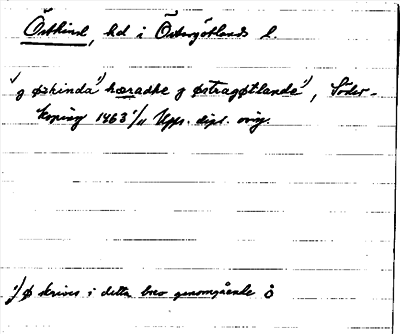 Östkind, hd i Östergötlands l.
"g øskinda¹⁾ hæradhe g østragøtlande¹⁾, Söder-
köping 1463 1/11 Upps. dipl. orig.
¹⁾ ø skrives i detta brev genomgående ö